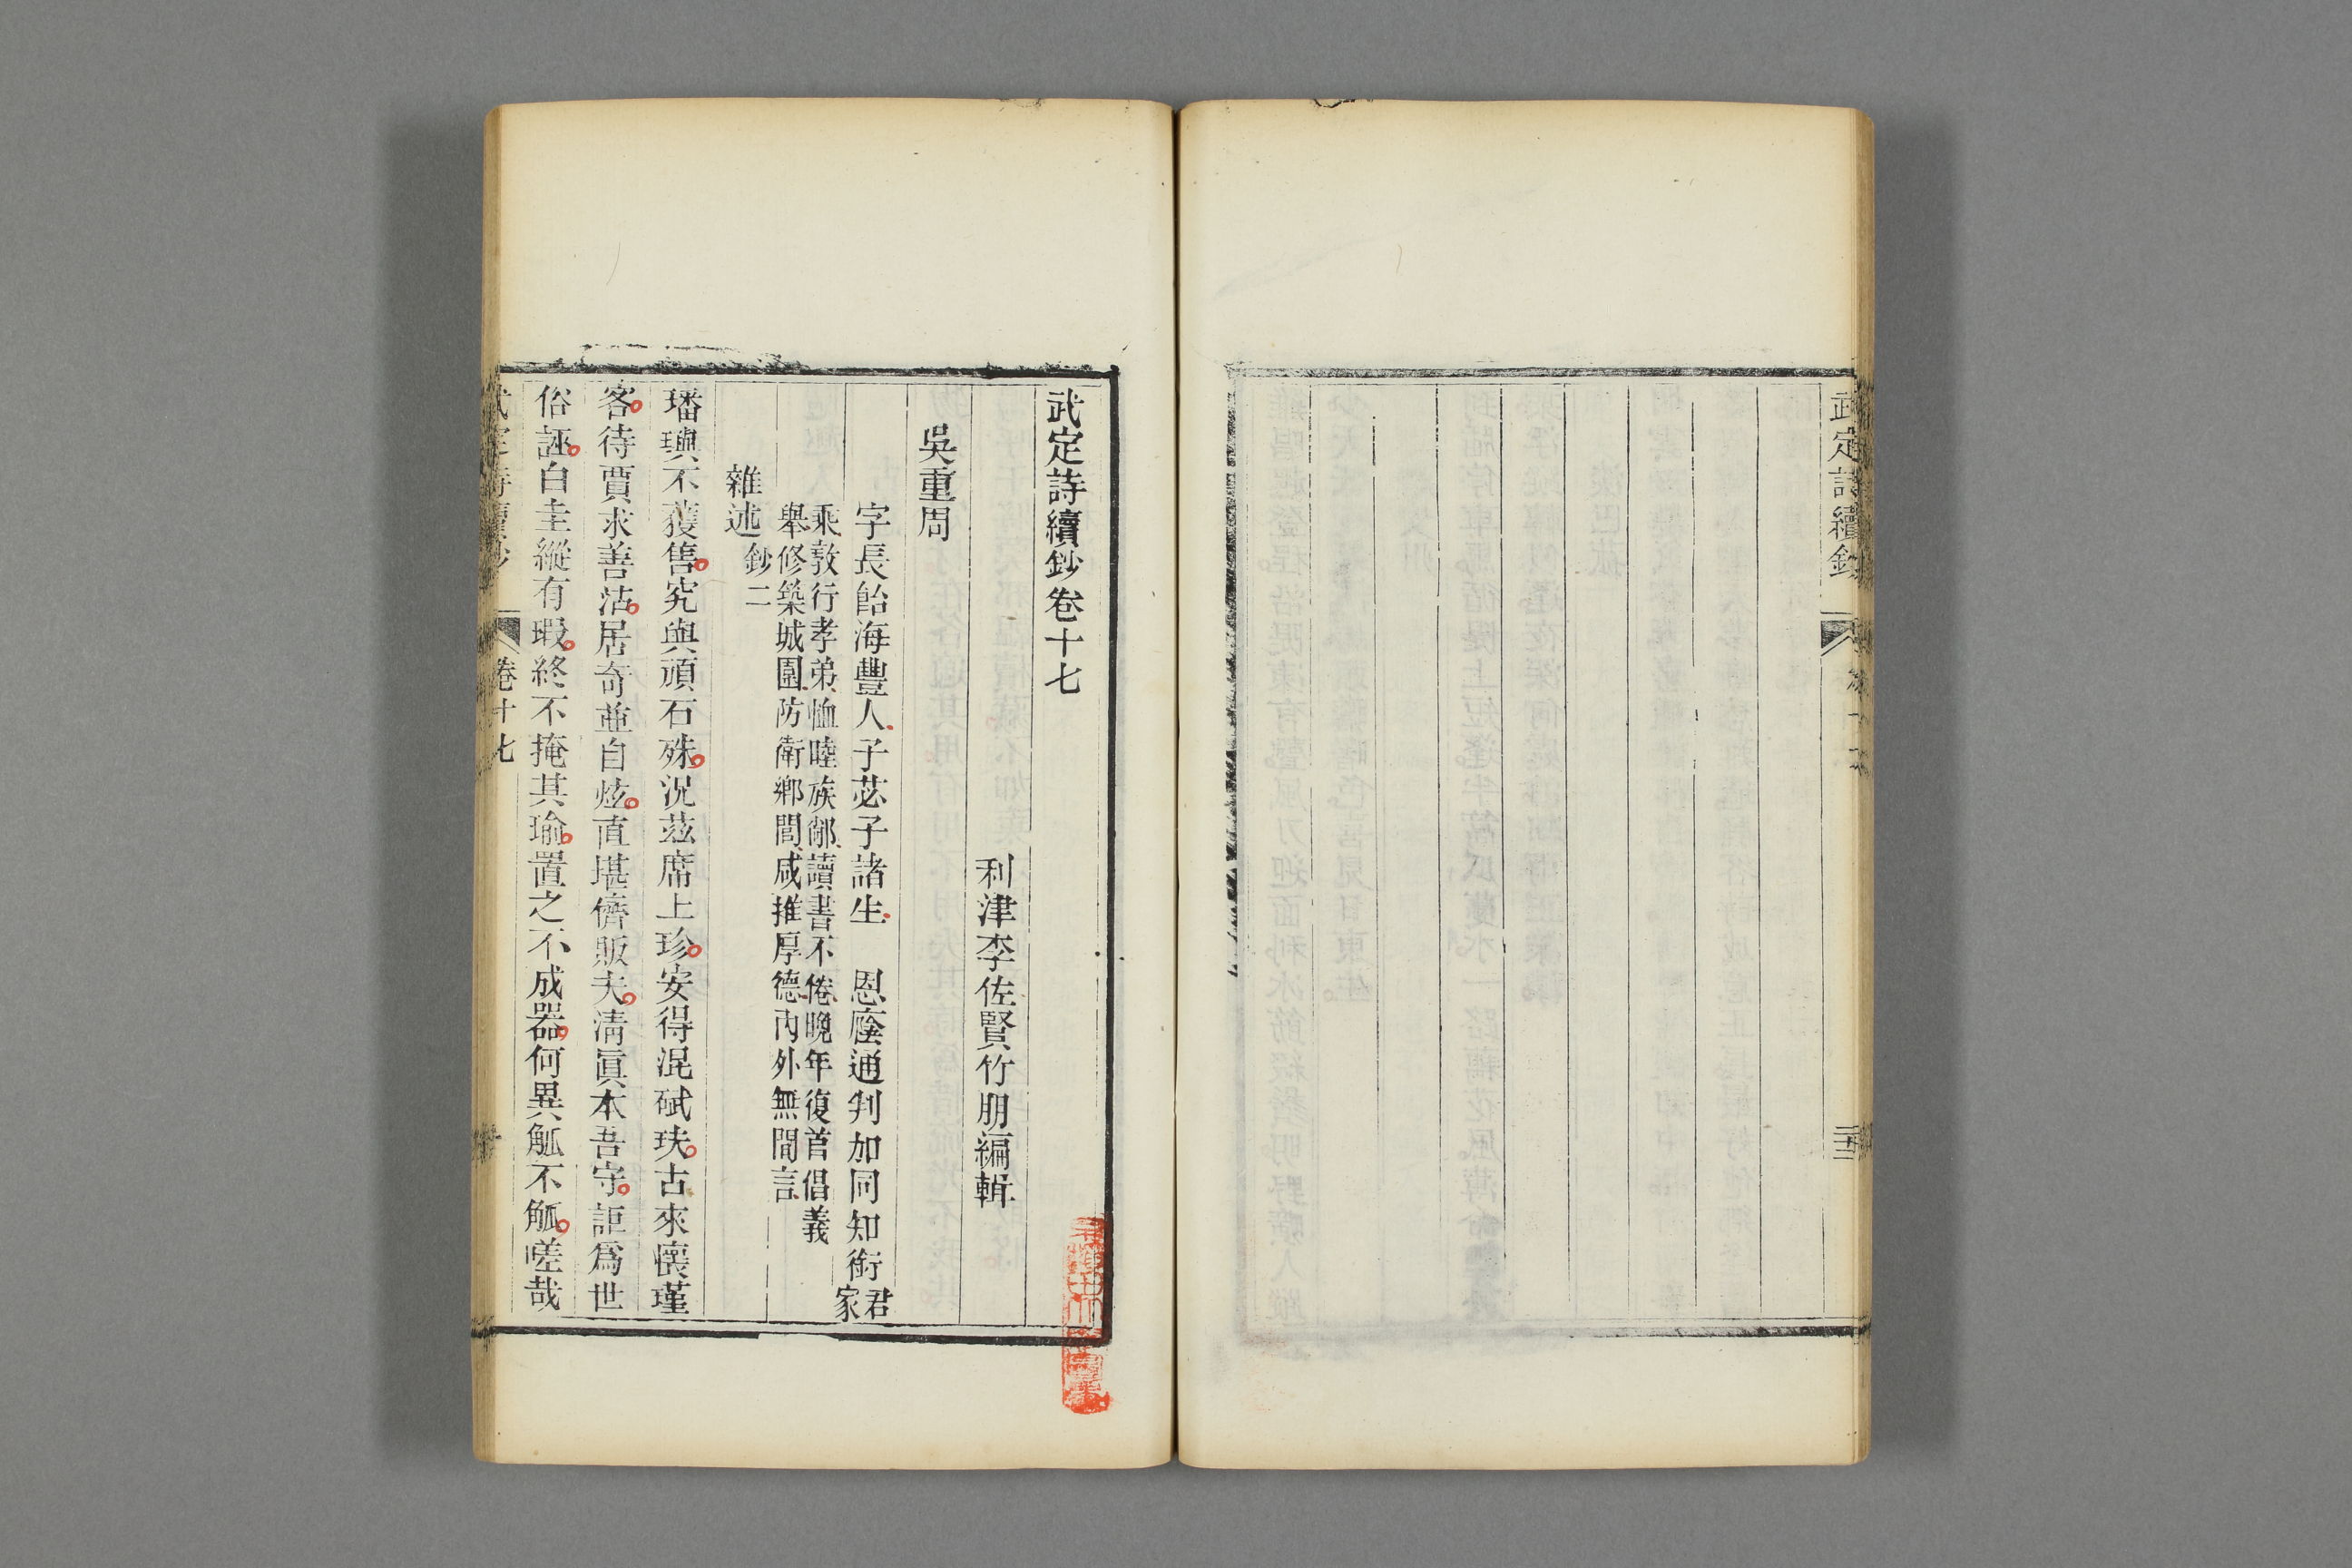 武定詩續鈔
二十三
武定詩續鈔卷十七
利津李佐賢竹朋編輯
吳重周
字長飴海豐人子苾子諸生　恩廕通判加同知銜君家
乘敦行孝弟恤睦族鄰讀書不倦晚年復首倡義
舉修築城圍防衛鄉閭咸推厚德內外無間言
雜述鈔二
璠璵不獲售究與頑石殊況茲席上珍安得混碔玞古來懷瑾
客待賈求善沽居奇並自炫直堪儕販夫清眞本吾守詎爲世
俗誣白圭縱有瑕終不掩其瑜置之不成器何異觚不觚嗟哉
武定詩續鈔
卷十七